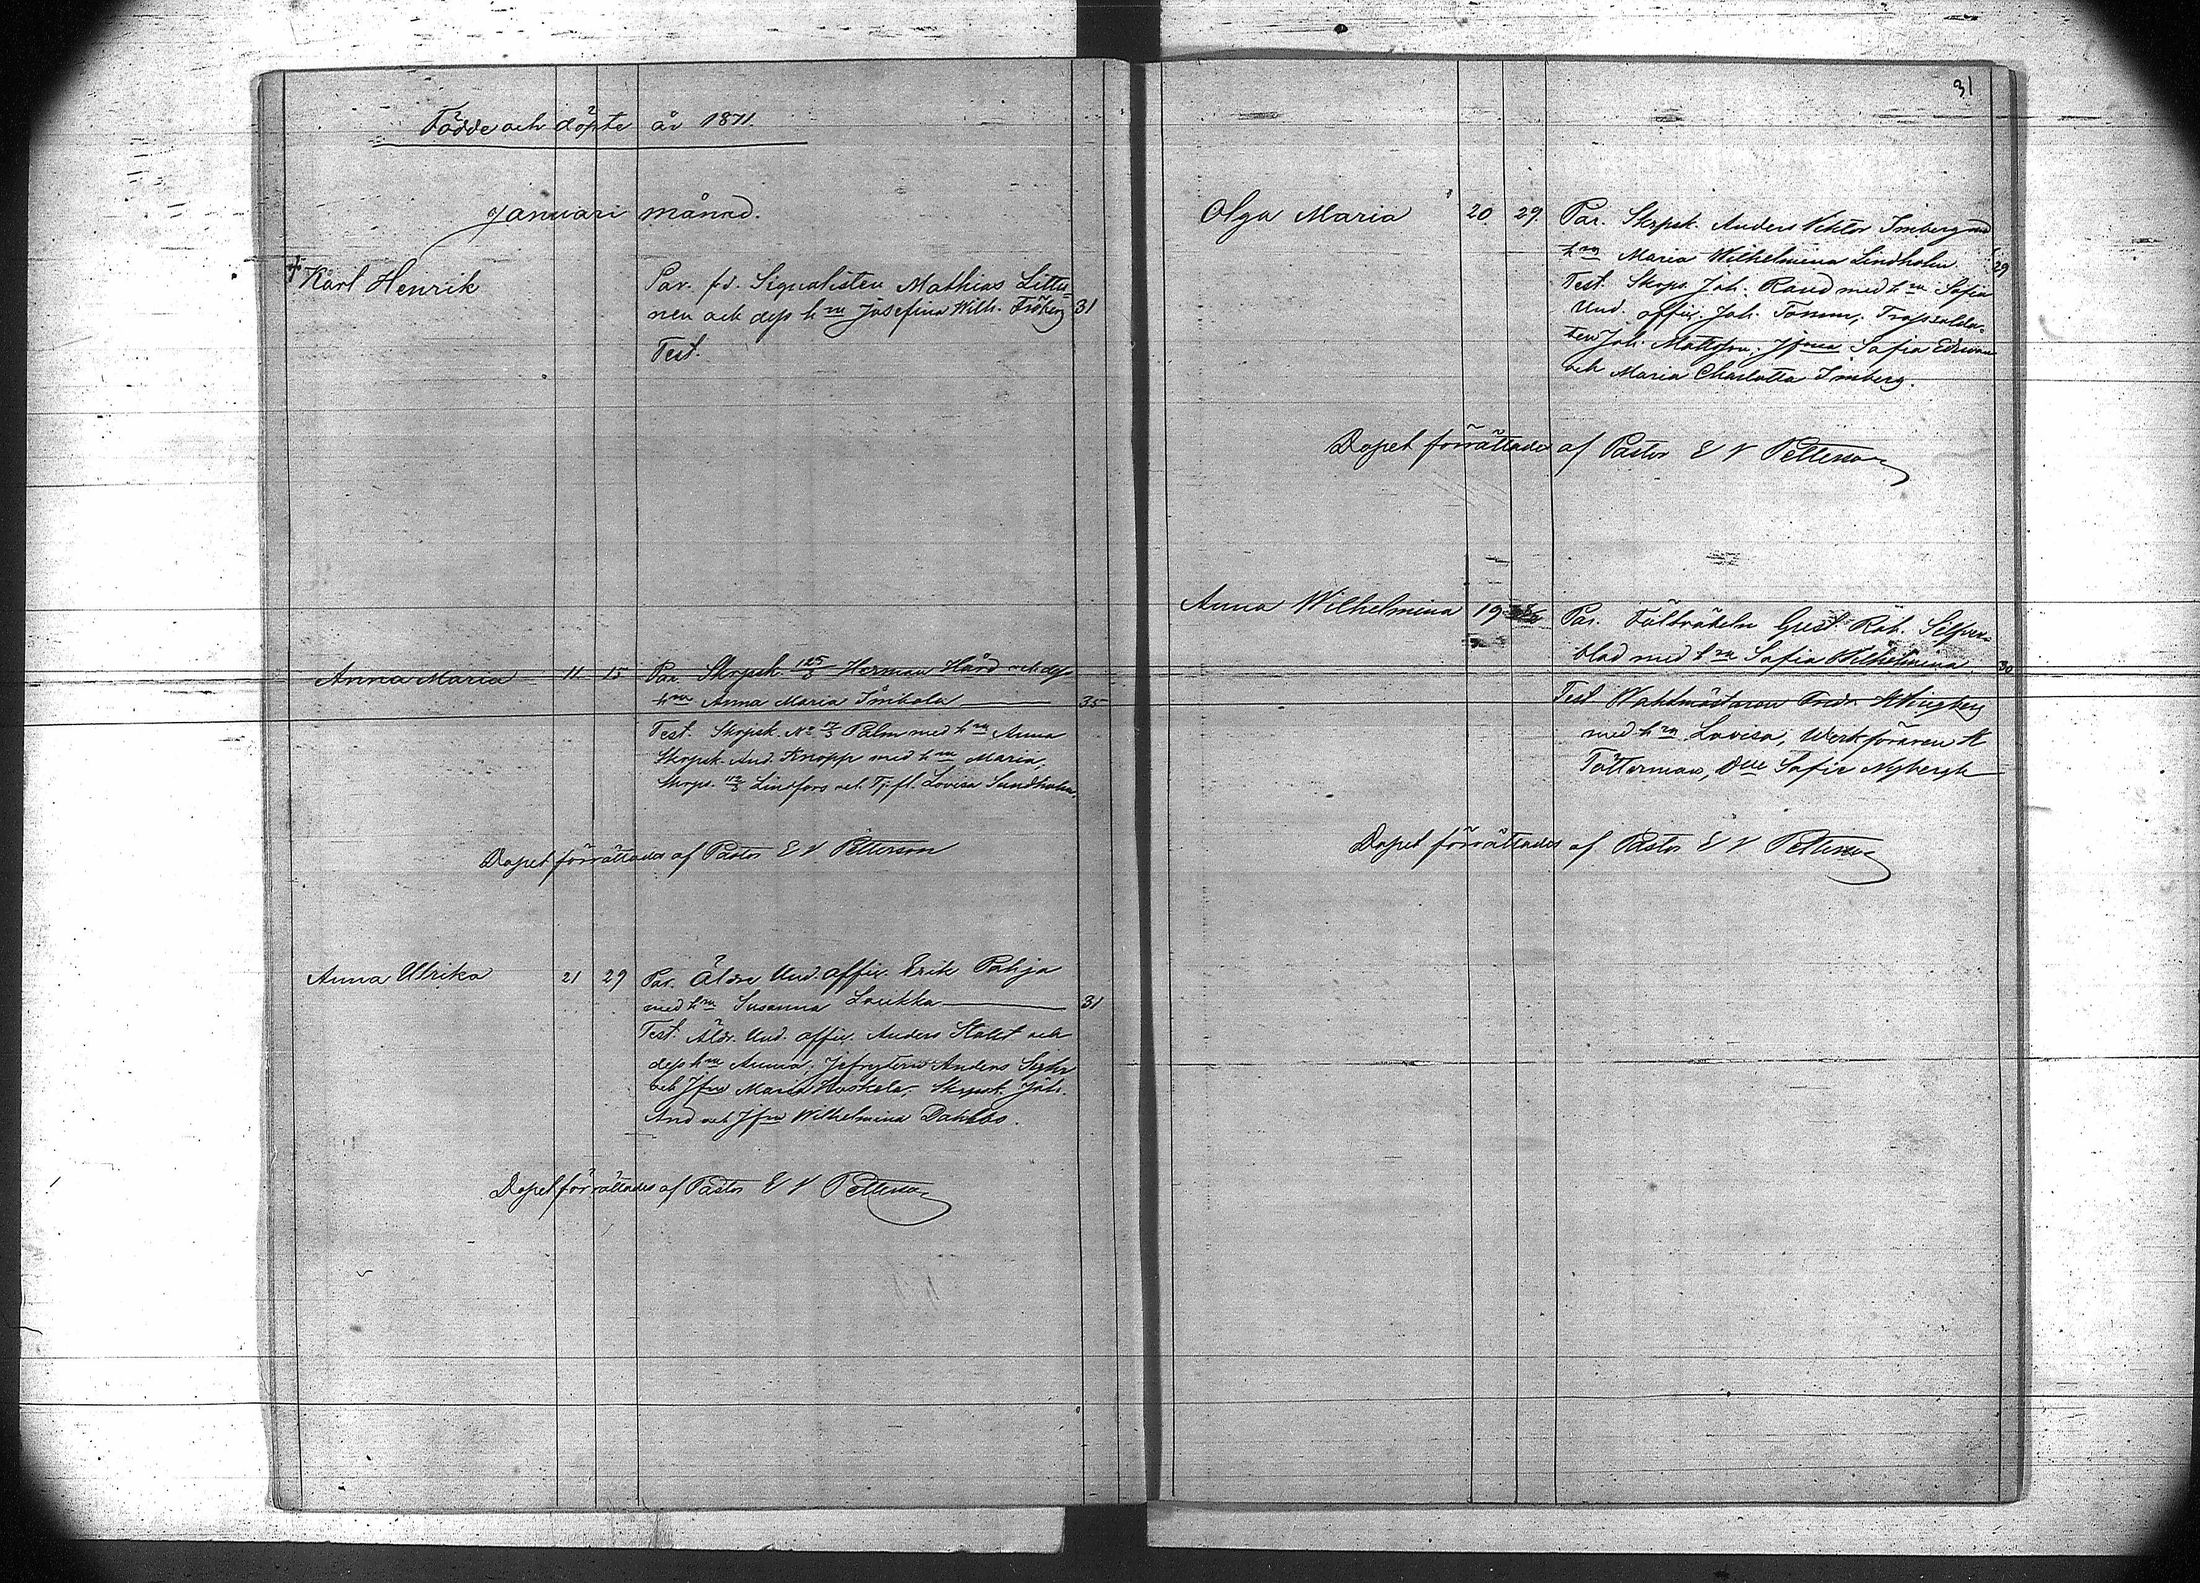 Födde och döpte år 1871.
Januari månad.
† Karl Henrik
Par. f.d. Signalisten Mathias Littu-
nen och dess hru Josefina Wilh. Fröberg 31
Test.
Anna Maria 11 15 Par. Skrpsk. 125/3 Herman Hård och dess
hru Anna Maria Imbola 35
Test. Skrpsk. No Palm med hru Anna
Skrpsk. And. Knopp med hru Maria,
Skrps. 112/3 Lindfors och Tj.fl. Lovisa Sundholm.
Dopet förrättades af Pastor E V Petterson
Anna Ulrika 21 29 Par. Äldre Und. offic. Erik Pahja
med hru Susanna Loukka 31
Test. Äldr. Und. offic. Anders Stolt och
dess hru Anna, Anders
och Jfru Maria Skrpsk. Joh.
And och Jfru Wilhelmina Dahlbo.
Dopet förrättades af Pastor E V Petterson
31
Olga Maria 20. 29. Par. Skrpsk. Anders Viktor Imberg med
hru Maria Wilhelmina Lindholm. 29
Test. Skrps. Joh. Rand med hru Sofia
Und. offic. Joh. Tomm, Trossolda-
ten Joh. Mattsson. Jfrna Sofia
och Maria Charlotta Imberg.
Dopet förrättades af Pastor E V Petterson
Anna Wilhelmina 19 Par. Fältväbeln Gust. Rob. Silfver-
blad med hru Sofia Wilhelmina 30
Test Wahtmästaren Fredr.
med hru Lovisa, Werkföraren K
Tötterman, Dlle Sofie Nybergh
Dopet förrättades af Pastor E V Petterson